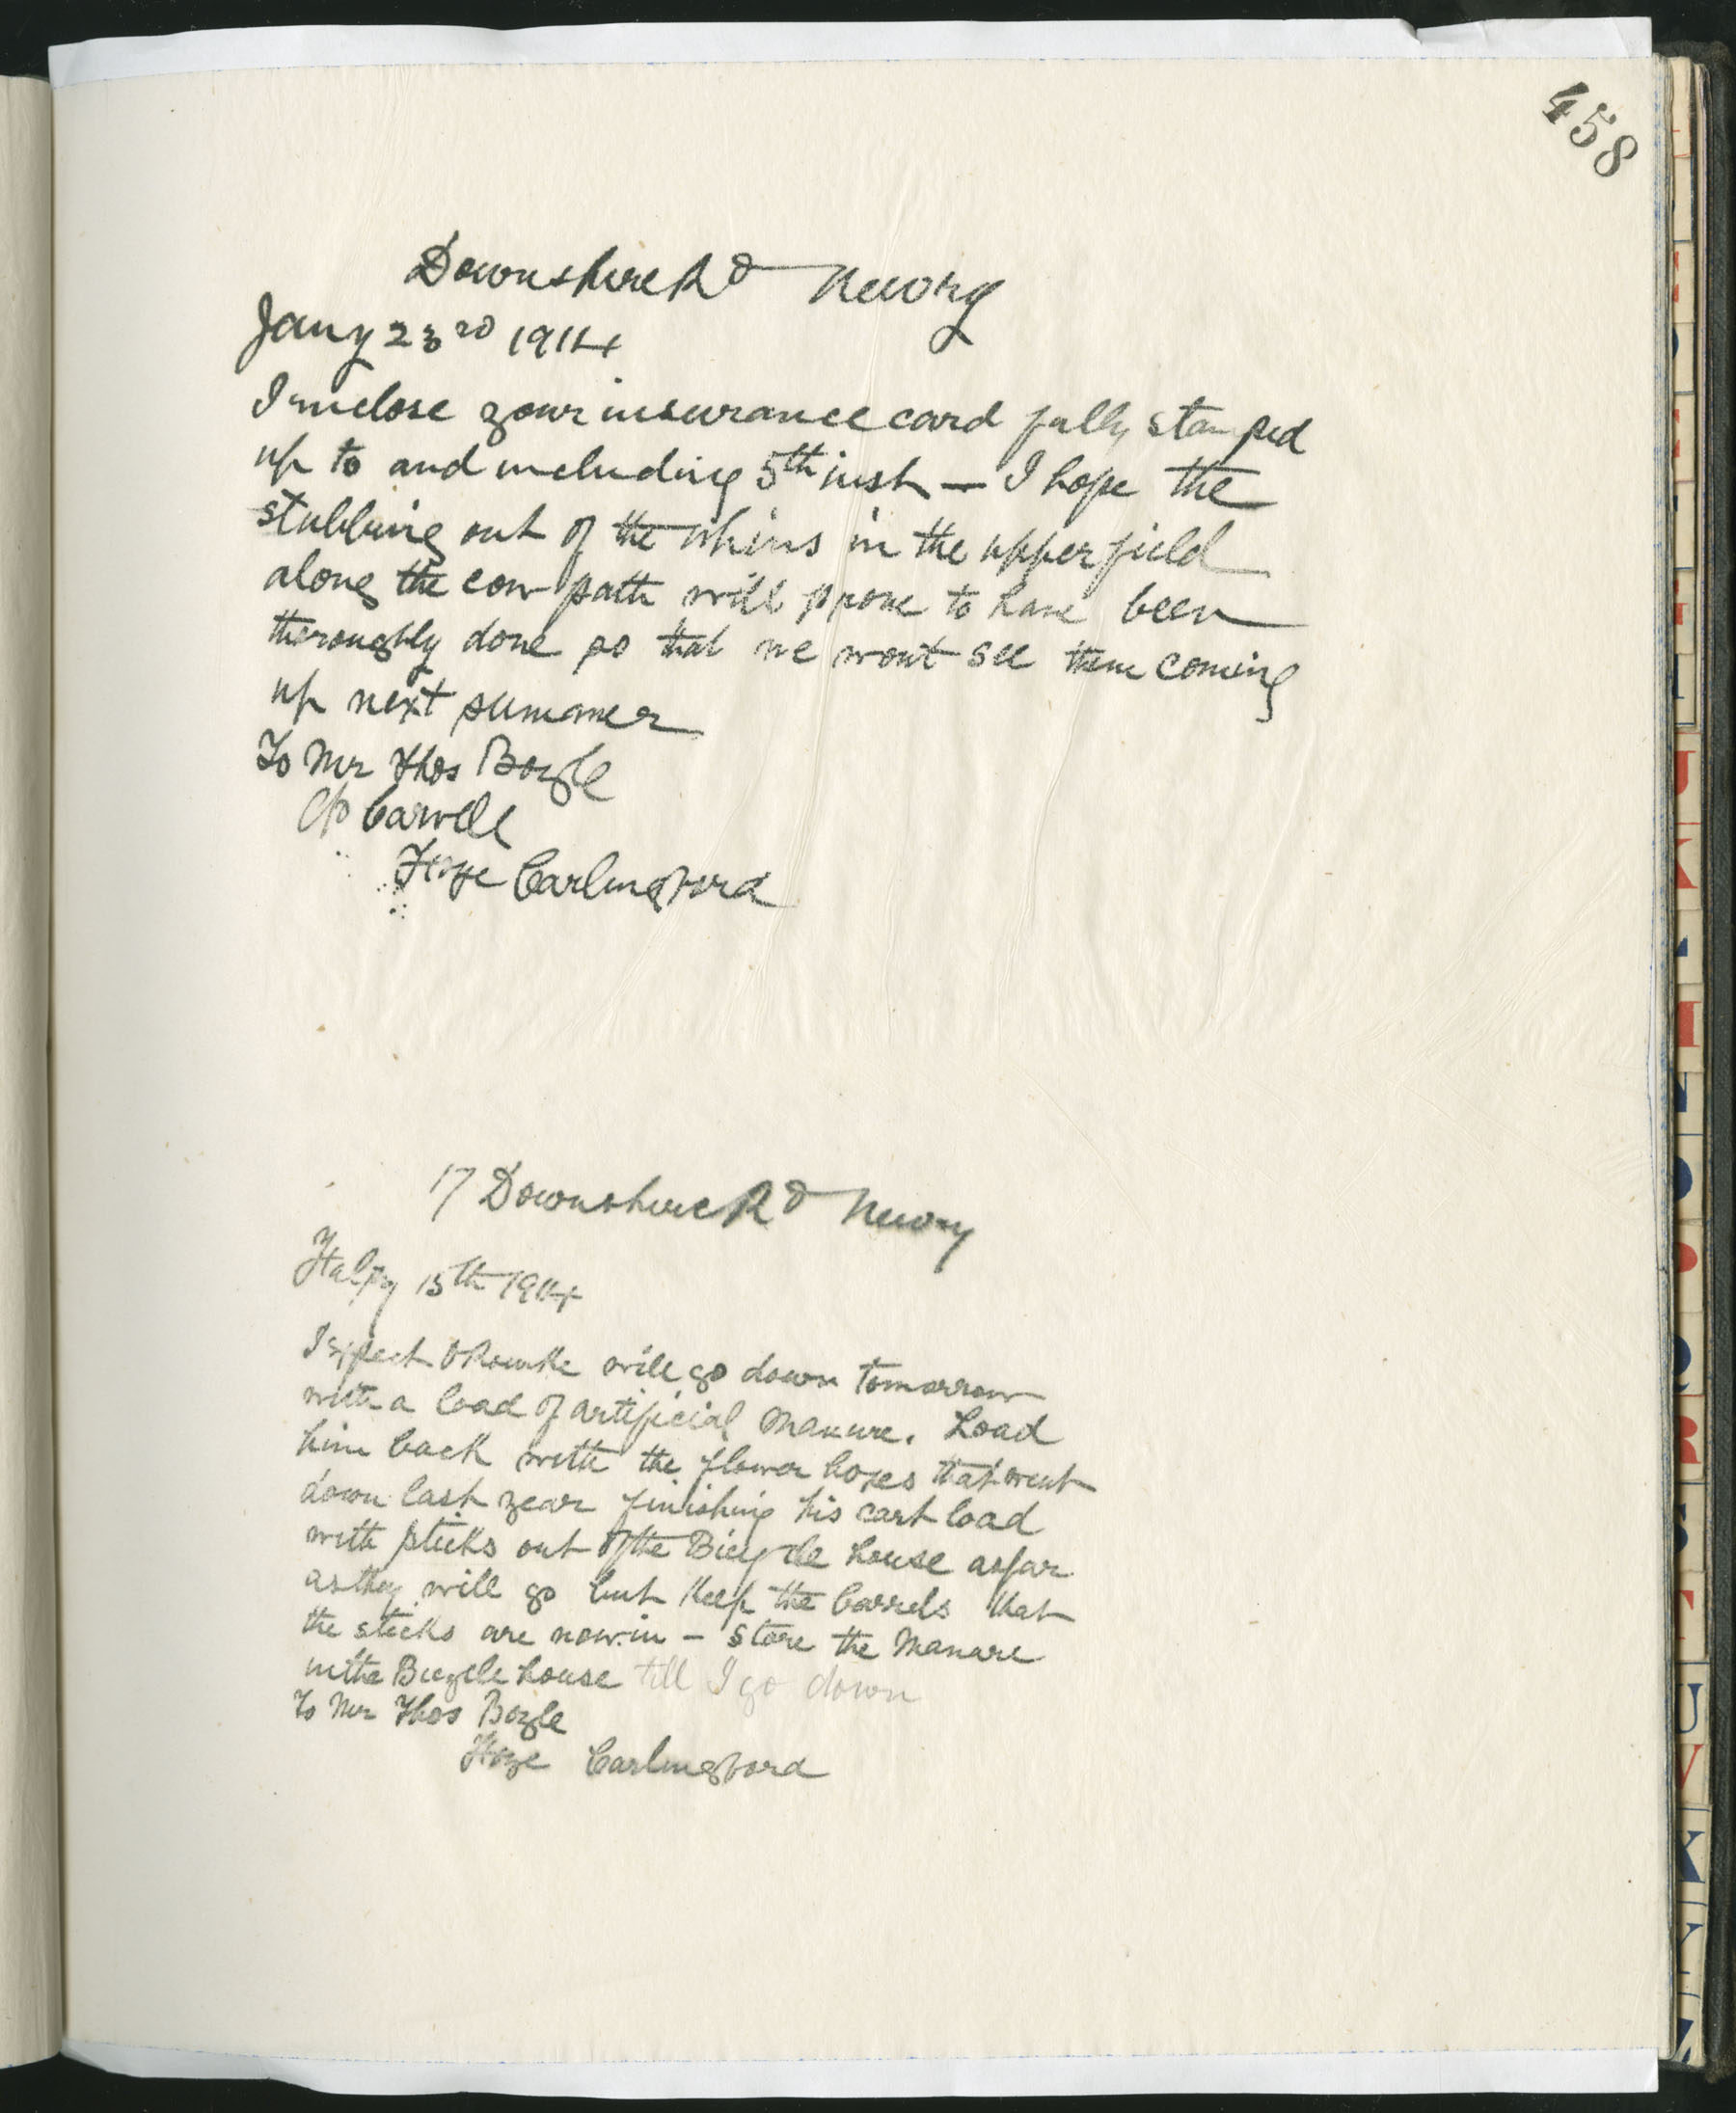 458
Downshire Rd Newry
Jany 23rd 1914
I enclose your insurance card fully stamped
up to and including 5th inst — I hope the
stubbing out of the whins in the upper field
along the cow path will prove to have been
thoroughly done so that we wont see them coming
up next summer
To Mr Thos Boyle
c/o Carvill
Carlingford
17 Downshire Rd Newry
15th 1914
I expect ORourke will go down tomorrow
with a load of artificial manure. Load
him back with the flower boxes that went
down last year finishing his cart load
with sticks out of the Bicycle house as far
as they will go but keep the barrels that
the sticks are now in – Store the Manure
in the Bicycle house till I go down
To Mr Thos Boyle
Carlingford